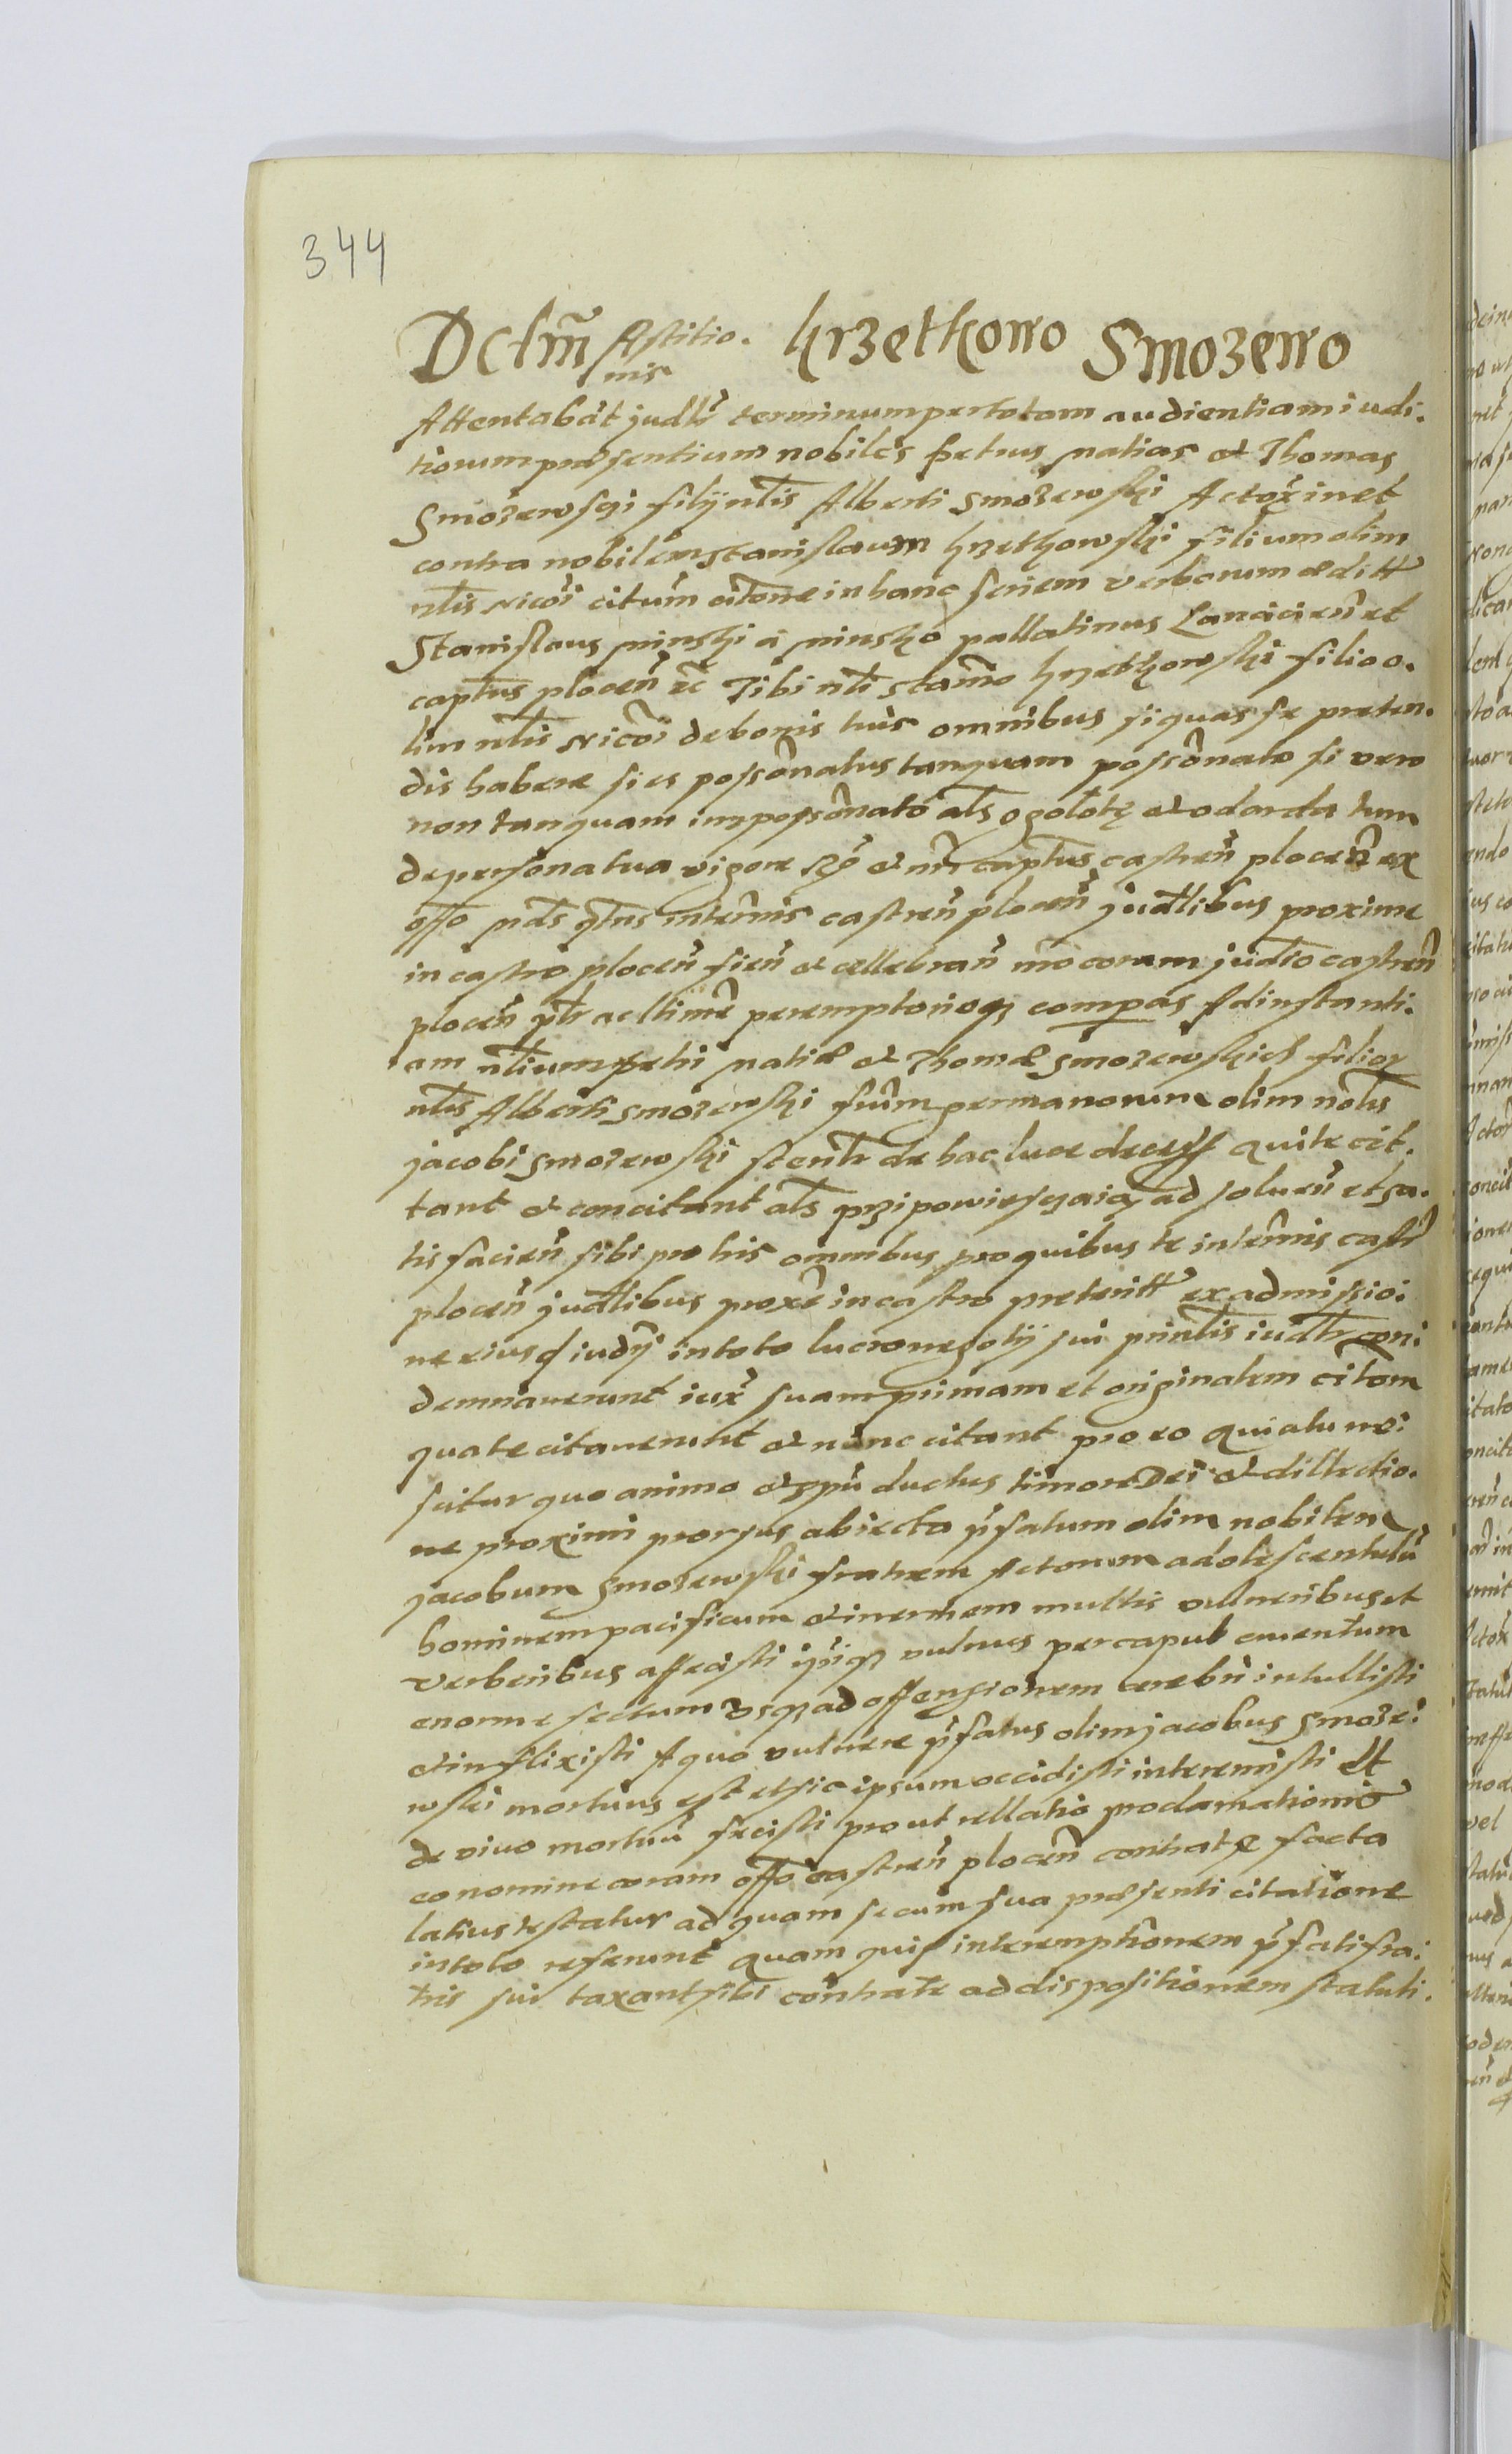 344
Dctm̃ Astitio. Krzethowo Smozewo
nis
Attentabat̃ judłr̃ terminum per totam audientiam iudi.
tiorum præsentium nobiles Petrus Matias et Thomas
Smozewsczi filij nłis Alberti Smozewski Actor̃ in et
contra nobilem Stanislaum Krzethowski filium olim
nłis Nicoĩ citum̃ citõne in hanc seriem verborum ædit
Stanislaus Minski a Minsko pallatinus Lanciciẽn et
captus̃ plocẽn ec̃ Tibi nłi Stan̄o Krzethowski filio o.
lim nłis Nicõi de bonis tuis omnibus si quas se preten.
dis habere si es possõnatus tanquam possõnato si vero
non tanquam impossõnato als̃ ogolotę et odarta tum
de persona tua vigore Rg̃o et nr̃i captus̃ castrẽn plocẽn ex
offo mds̃ qtñs in term̃is castrẽn plocẽn judłibus proxime
in castro plocẽn fiẽn et cellebrañ mõ coram judtio castrẽn
plocẽn płr̃ ac ltime peremptorieq̨ compãs Ad instanti.
am nłium Petri Matiæ et Thomæ Smozewskich filior̃
nłis Alberti Smozewski fr̃um germanorum olim nobłis
Jacobi Smozewski recentr̃ de hac luce decess̃ qui te cit.
tant et concitant als̃ przipowiesczaią ad soluẽn et sa.
tisfaciẽn sibi pro his omnibus pro quibus te in term̃is castr̃
plocẽn judłibus prox̃e in castro preteritt̃ ex admissio:
ne eiusd iudij̃ in toto lucro negotij sui prinłis iudłr̃ con:
demnaverunt iux̃ suam primam et originalem citõem
qua te citaverunt et nunc citant pro eo Quia tu ne:
scitur quo animo et spũ ductus timore Dei et dillectio.
ne proximi prorsus abiecta p̃fatum olim nobilem
Jacobum Smozewski fratrem Actorum adolescentulũ
hominem pacificum et inermem multis vulneribus et
verberibus affecisti ip̃iq̨ vulnus per caput cruentum
enorme sectum usq̨ ad offensionem cerebri intullisti
et inflixisti A quo vulnere p̃fatus olim Jacobus Smoze:
wski mortuus est et sic ipsum occidisti interemisti et
de vivo mortuũ fecisti prout rellatio proclamationis
eo nomine coram offo castrẽn plocẽn contra te facta
latius testatur ad quam se cum sua præsenti citatione
in toto referunt Quam quid̃ interemptionem p̃fati fra:
tris sui taxant sibi contra te ad dispositionem statuti.